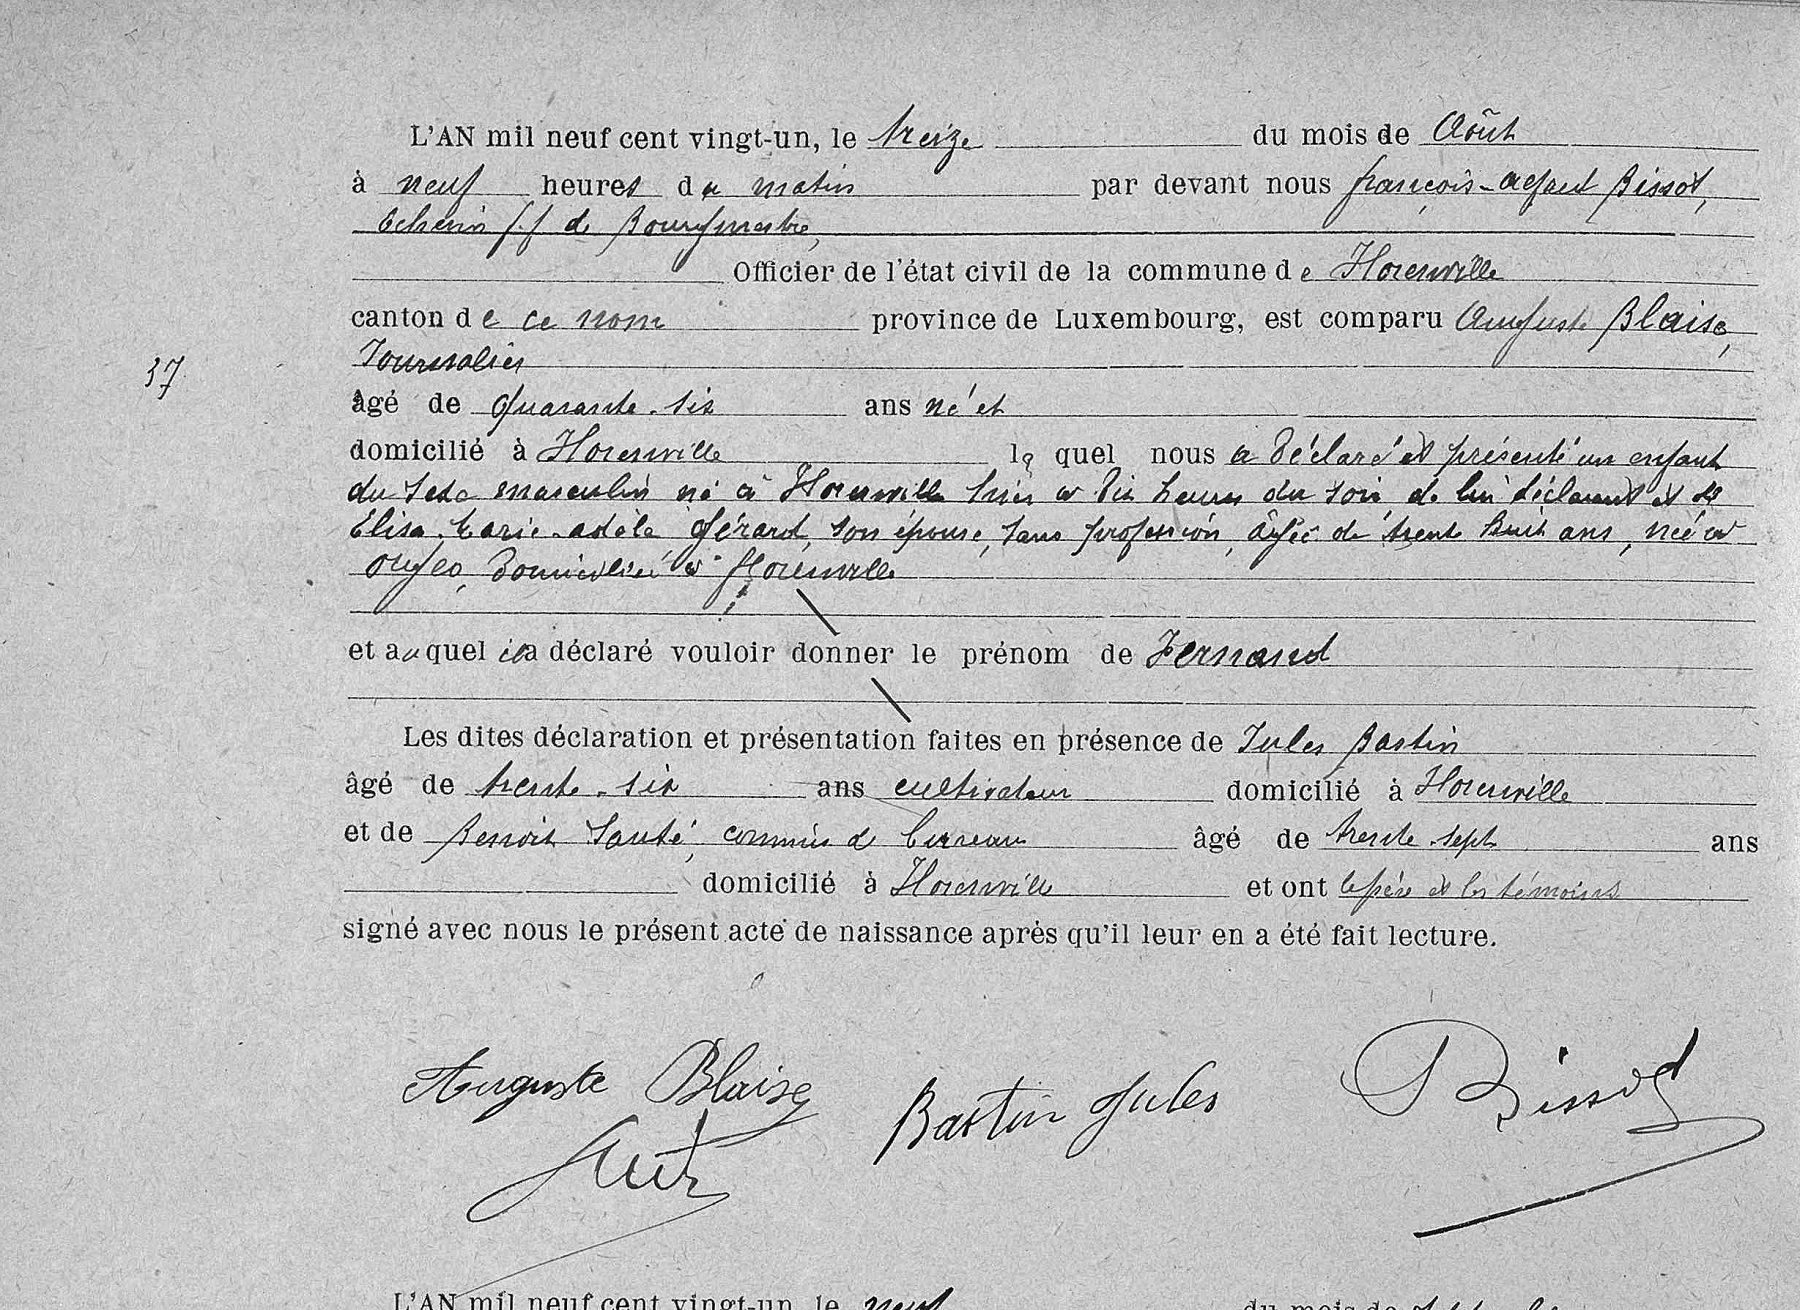 L'AN mil neuf cent vingt-un, le treize du mois de Août
à neuf heures du matin par devant nous françois- Bissot,
Echevin f.f de Bourgmestre,
Officier de l'état civil de la commune de Florenville
canton de ce nom province de Luxembourg, est comparu Auguste Blaise,
Journalier
37
âgé de quarante-six ans né et
domicilié à Florenville lequel nous a déclaré et présenté un enfant
du sexe masculin né à Florenville hier à dix heures du soir de lui déclarant et de
Elisa-Marie-adèle Gérard, son épouse, sans profession, âgée de trente huit ans, née à
domiciliée à Florenville
et auquel il a déclaré vouloir donner le prénom de Fernand
Les dites déclaration et présentation faites en présence de Jules Bastin
âgé de trente-six ans cultivateur domicilié à Florenville
et de Benoit Santé, commis de bureau âgé de trente-sept ans
domicilié à Florenville et ont le père et les témoins
signé avec nous le présent acte de naissance après qu'il leur en a été fait lecture.
Auguste Blaise Bastin Jules Bissot
L'AN mil neuf cent vingt-un, le neuf du mois de